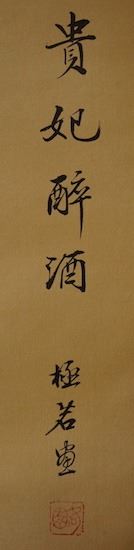 貴妃醉酒
極若畫